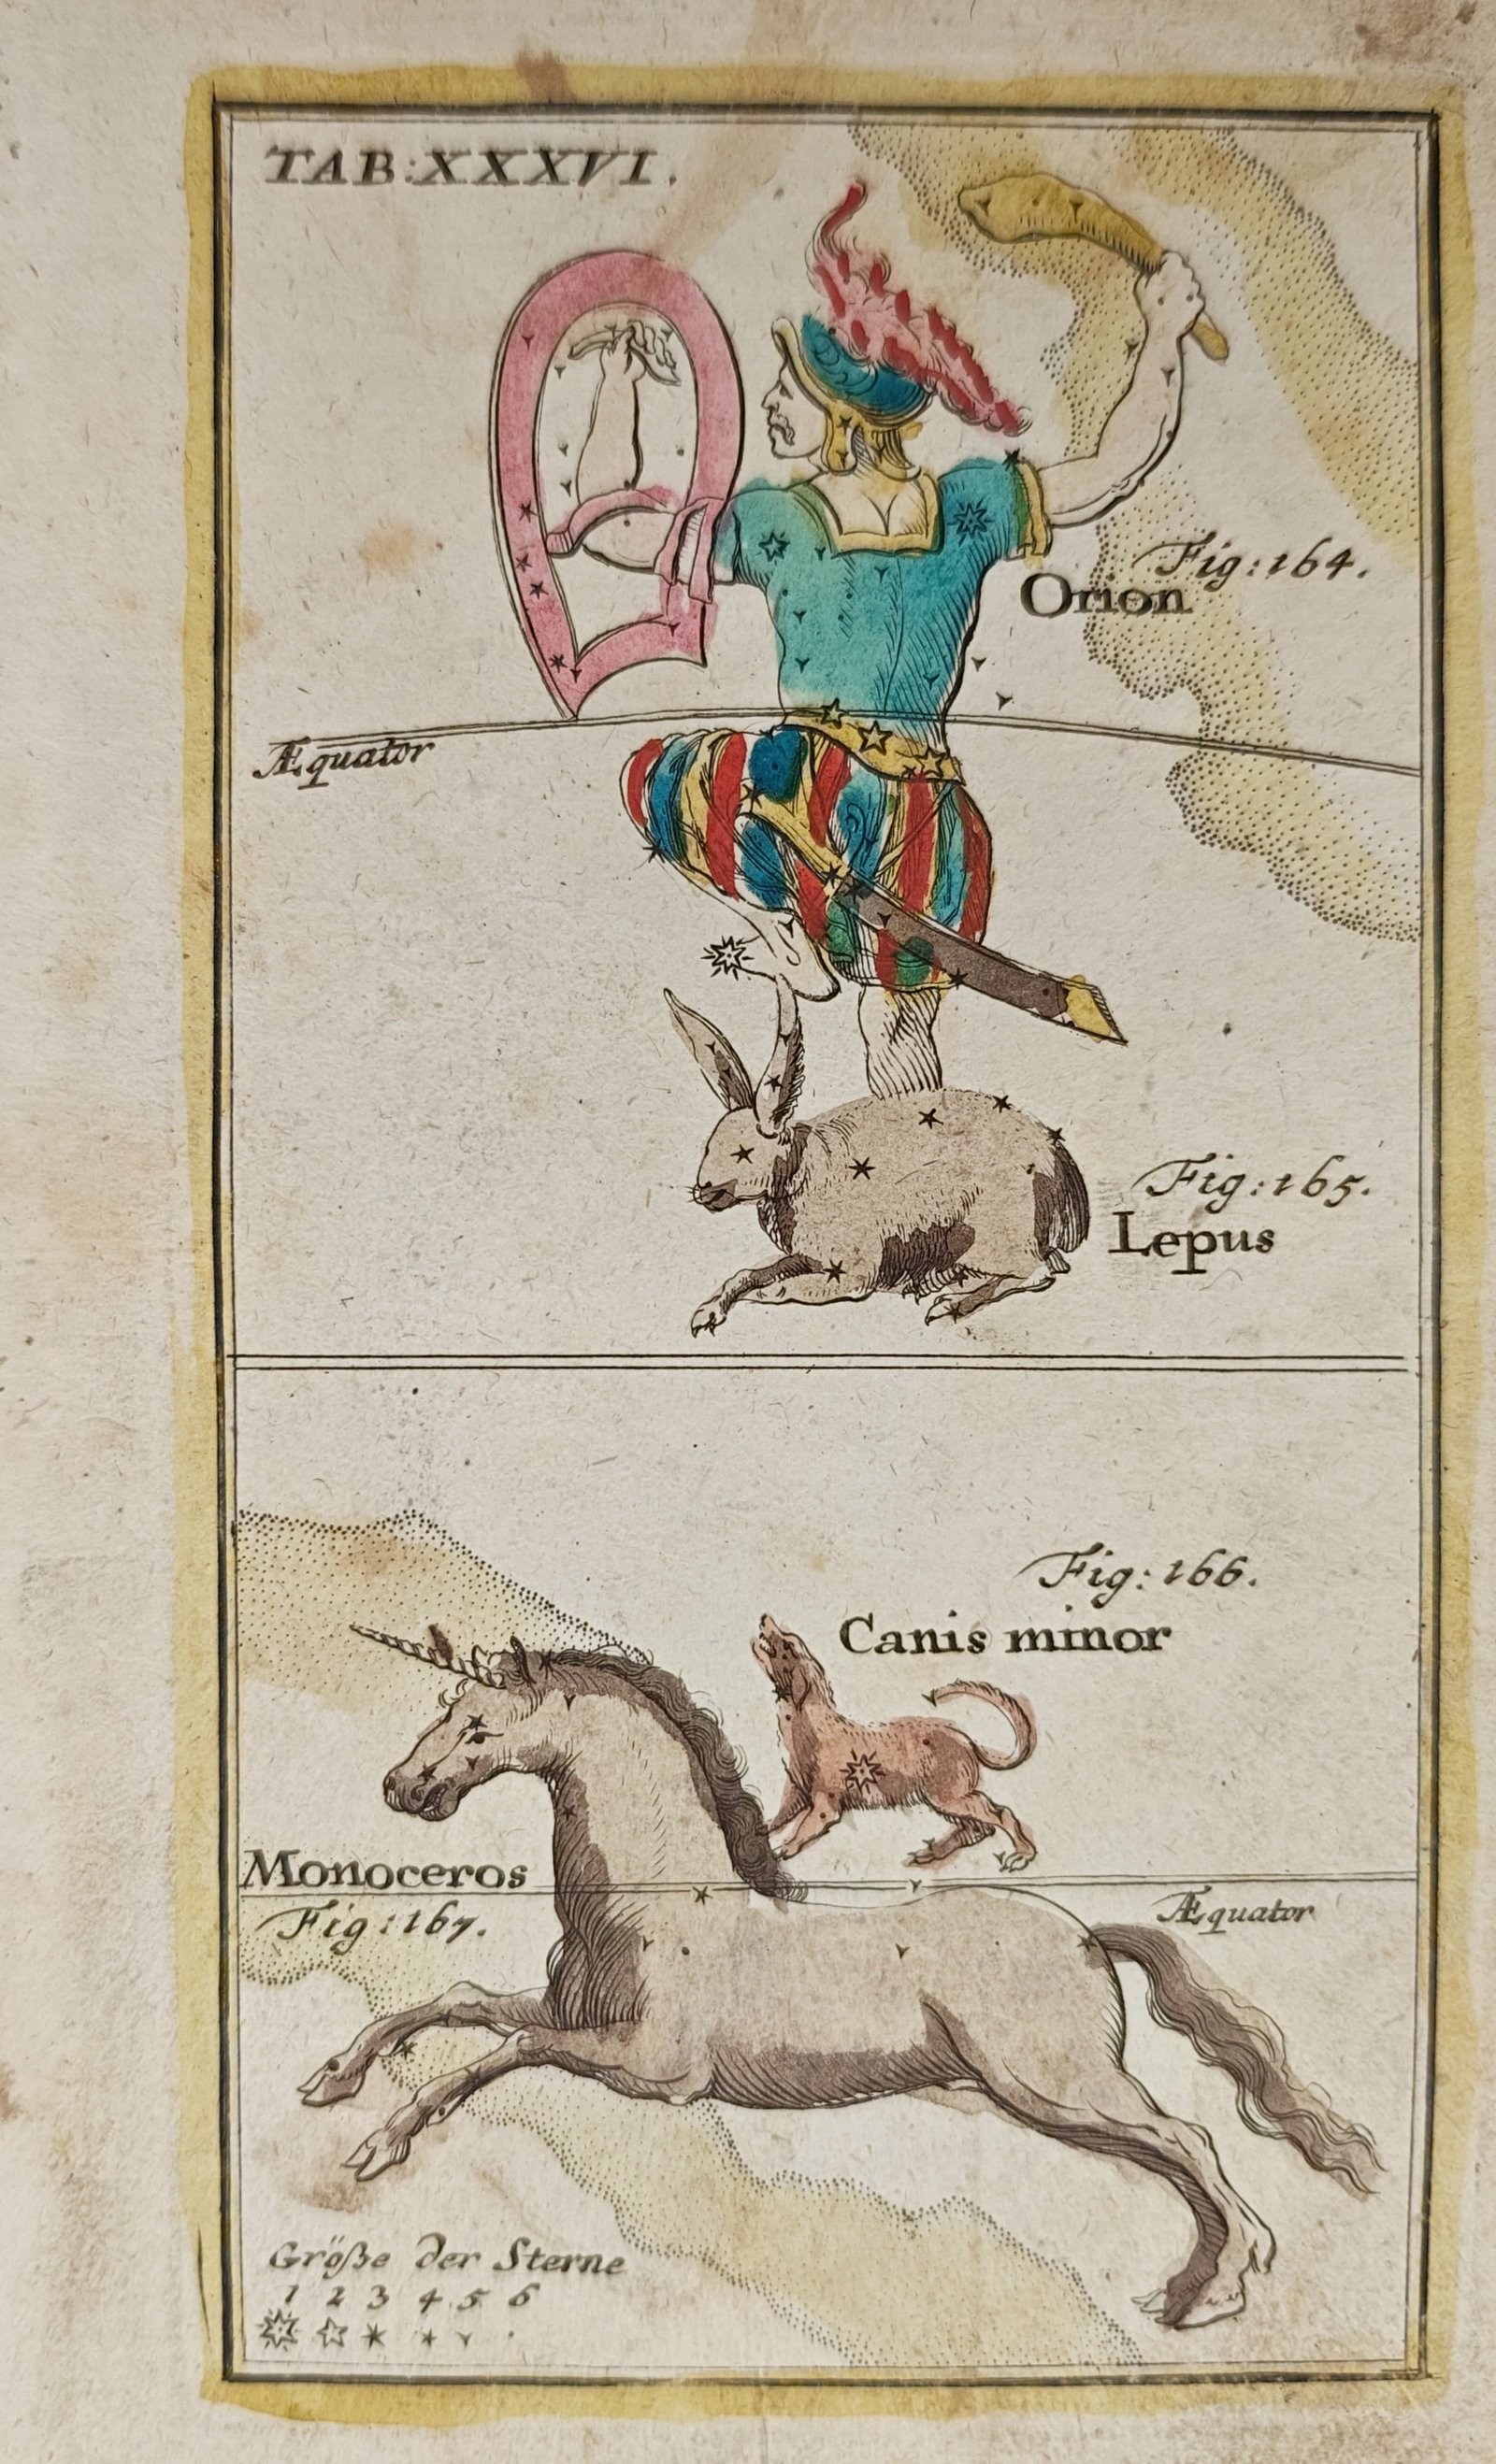 TAB:XXXVI.
Fig:164.
Orion
Æquator
Fig:165.
Lepus
Fig:166.
Canis minor
Monoceros
Fig:167.
Æquator
Größe der Sterne
1 2 3 4 5 6